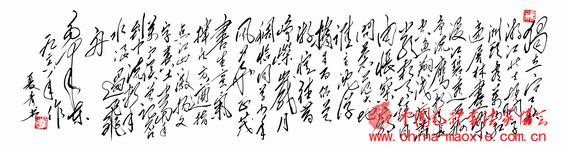 独立寒秋
湘江北去橘子
洲头看万山红
遍层林尽染
漫江碧透百舸
争流鹰击长空
鱼翔浅底万类
霜天竞自
由怅寥廓
问苍茫大地
谁主沉浮
携来百侣
曾游忆往昔
峥嵘岁月
稠恰同学少年
风华正茂
书生意气
挥斥方遒指
点江山激扬文
字粪土当年万户侯
曾记否到中流击
水浪遏飞
舟
中国毛体书法家协会
www.china-maoxie.com.cn